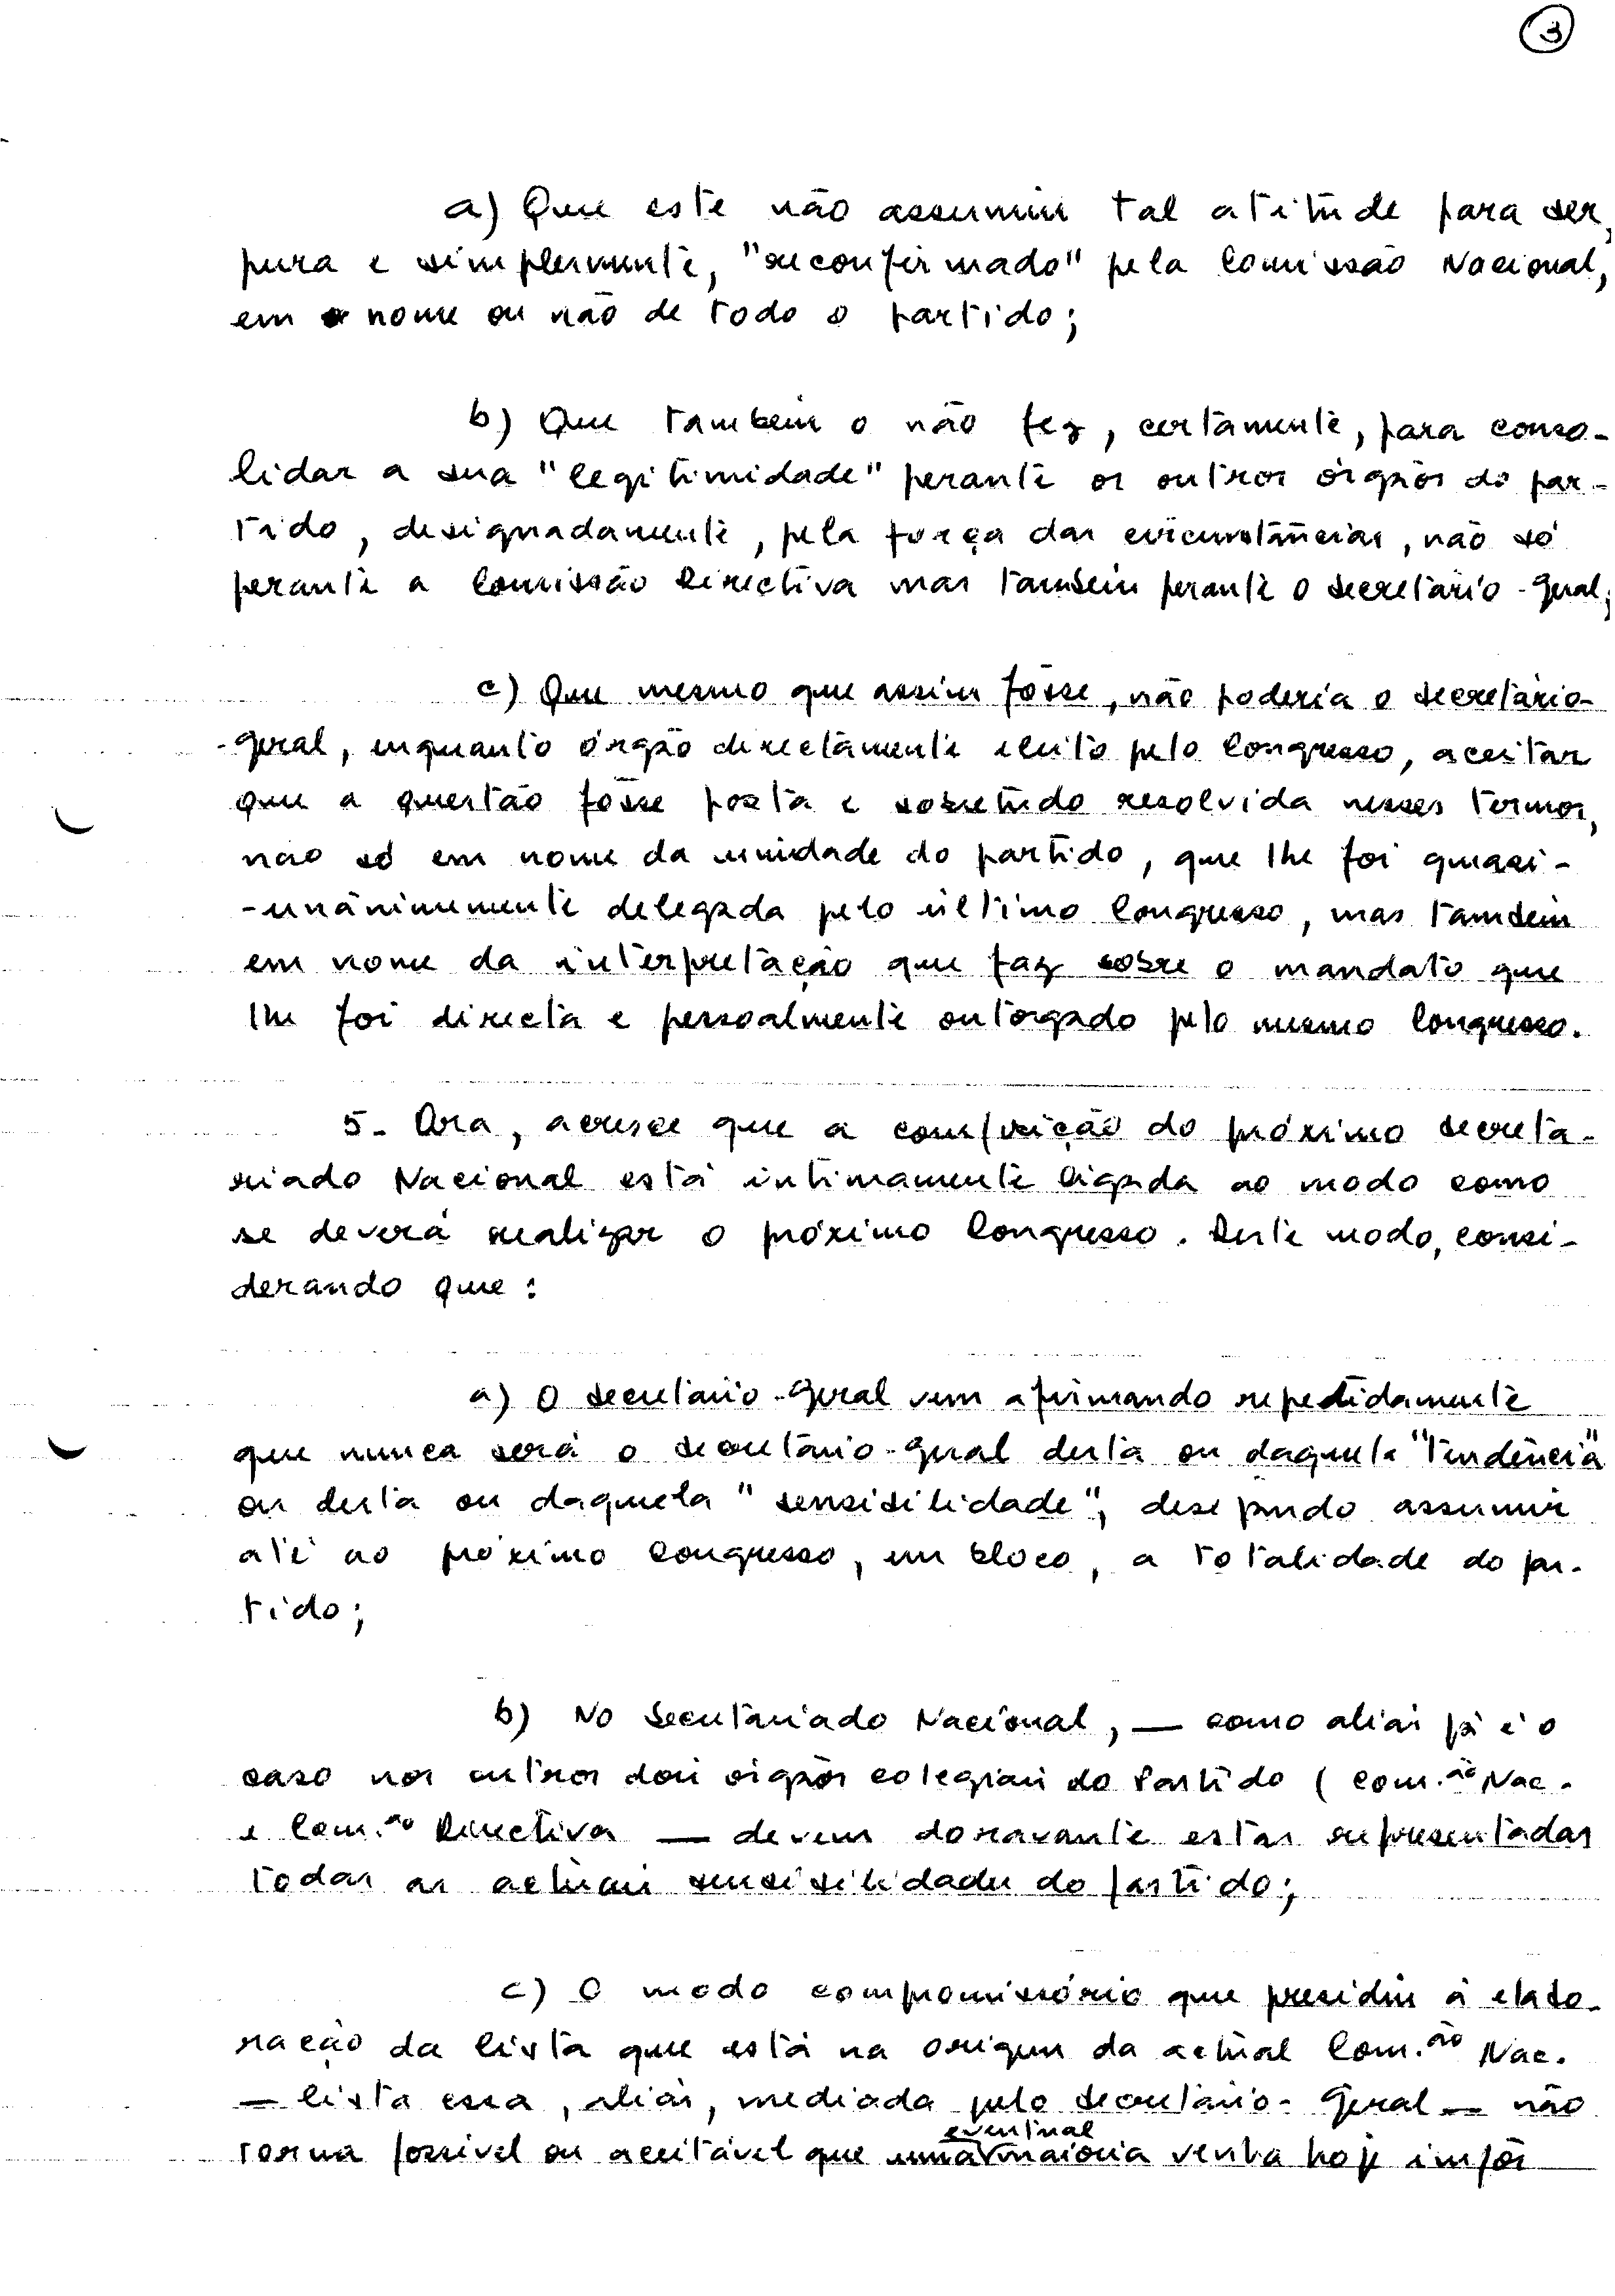 3
a) Que este não assumiu tal atitude para ser,
pura e simplesmente, "reconfirmado" pela Comissão Nacional,
em nome ou não de todo o partido;
b) Que também o não fez, certamente, para conso-
lidar a sua "legitimidade" perante os outros órgãos do par-
tido, designadamente, pela força das circunstâncias, não só
perante a Comissão Directiva mas também perante o Secretário-Geral;
c) Que mesmo que assim fosse, não poderia o Secretário-
-Geral, enquanto órgão directamente eleito pelo Congresso, aceitar
que a questão fosse posta e sobretudo resolvida nesses termos,
não só em nome da unidade do partido, que lhe foi quasi-
-unânimemente delegada pelo último Congresso, mas também
em nome da interpretação que faz sobre o mandato que
lhe foi directa e pessoalmente outorgado pelo mesmo Congresso.
5- Ora, acresce que a composição do próximo Secreta-
riado Nacional está intimamente ligada ao modo como
se deverá realizar o próximo Congresso. Deste modo, consi-
derando que:
a) O Secretário-Geral vem afirmando repetidamente
que nunca será o Secretário-Geral desta ou daquela "tendência"
ou desta ou daquela "sensibilidade", desejando assumir
até ao próximo Congresso, em bloco, a totalidade do par-
tido;
b) No Secretariado Nacional, — como aliás já é o
caso nos outros dois órgãos colegiais do Partido (Com.ão Nac.
e Com.ão Directiva — devem doravante estar representadas
todas as actuais sensibilidades do Partido;
c) O modo compromissório que presidiu à elabo-
ração da lista que está na origem da actual Com.ão Nac.
— lista essa, aliás, mediada pelo Secretário-Geral — não
torna possível ou aceitável que uma eventual maioria venha hoje impôr